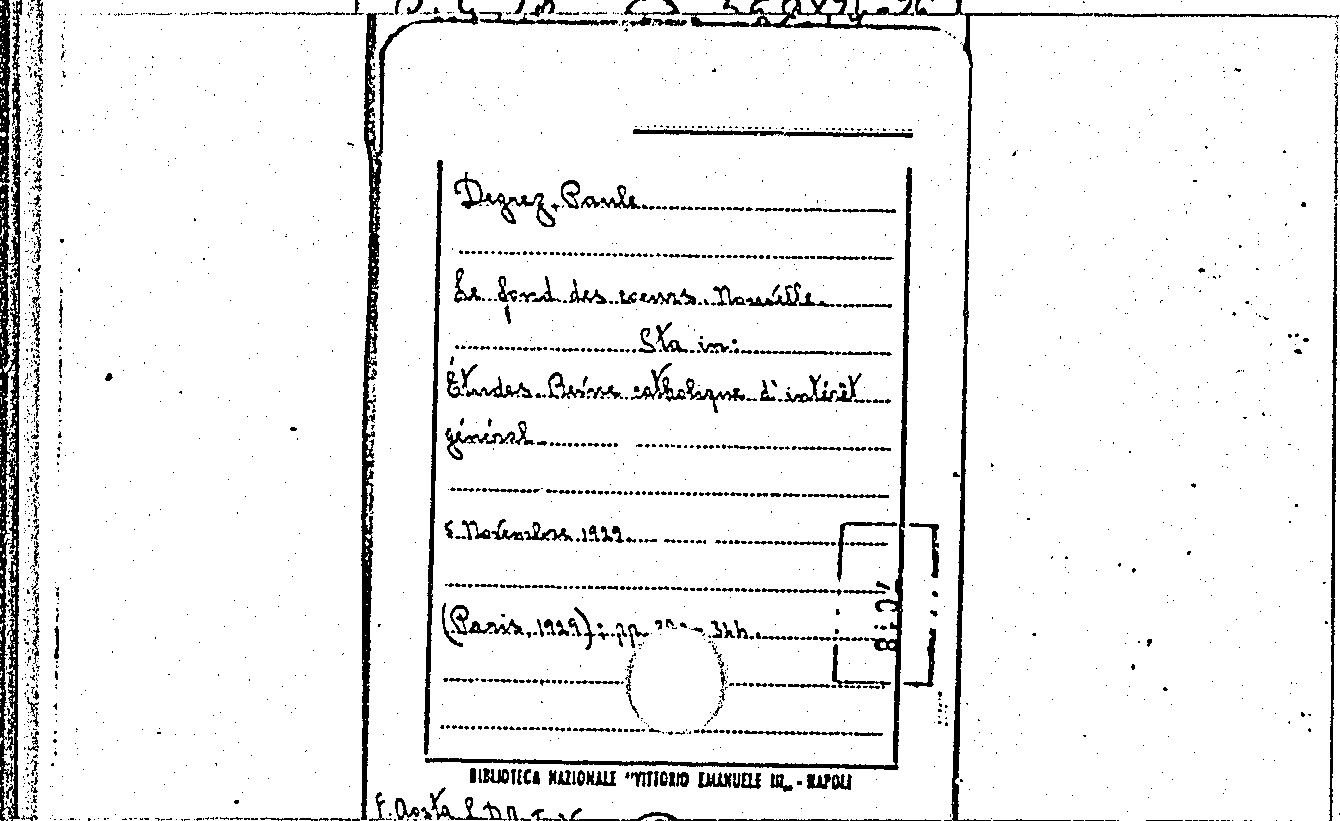 Degrez, Paule
Le fond des coeurs. Nouvelle.
Sta in:
Études. Revue catholique d'intérêt
général.
5 Novembre 1929.
(Paris, 1929); pp.
BIBLIOTECA NAZIONALE "VITTORIO EMANUELE III„ - NAPOLI